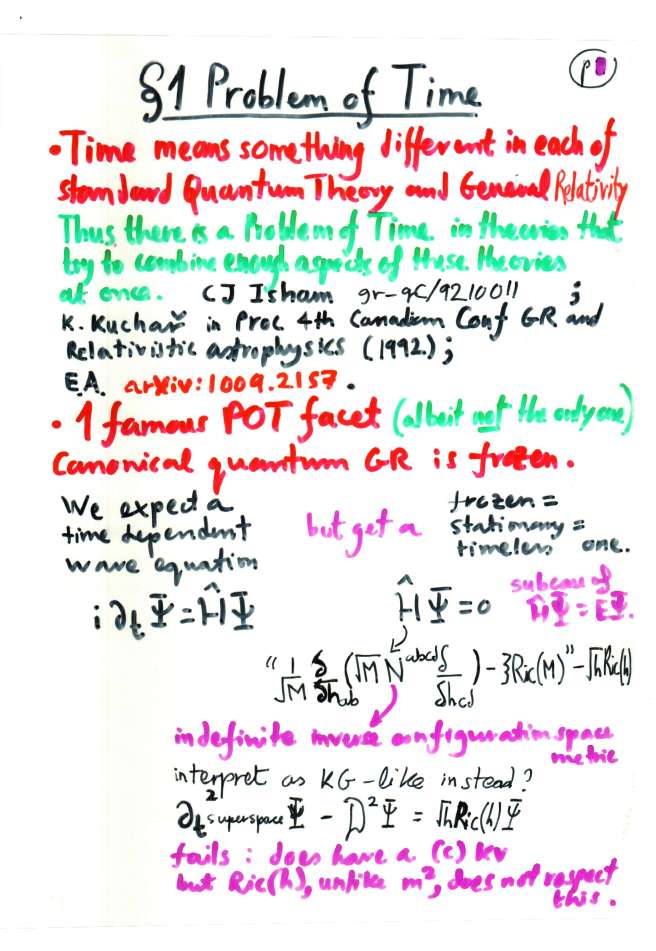 p
§1 Problem of Time
• Time means something different in each of
standard Quantum Theory and General Relativity
Thus there is a Problem of Time in theories that
try to combine enough aspects of these theories
at once. CJ Isham gr-qc/9210011 ;
K. Kuchař in Proc 4th Canadian Conf GR and
Relativistic astrophysics (1992) ;
E.A. arXiv:1009.2157 .
• 1 famous POT facet (albeit not the only one)
Canonical quantum GR is frozen.
We expect a
time dependent
wave equation
but get a
frozen =
stationary =
timeless one.
i ∂t Ψ = Ĥ Ψ
Ĥ Ψ = 0
subcase of
ĤΨ = EΨ.
“ 1/√M δ/δhab (√M N^abcd δ/δhcd) − ξRic(M)” − √h Ric(h)
indefinite inverse configuration space
metric
interpret as KG-like instead?
∂²t superspace Ψ − D² Ψ = √h Ric(h) Ψ
fails : does have a (c) KV
but Ric(h), unlike m², does not respect
this .